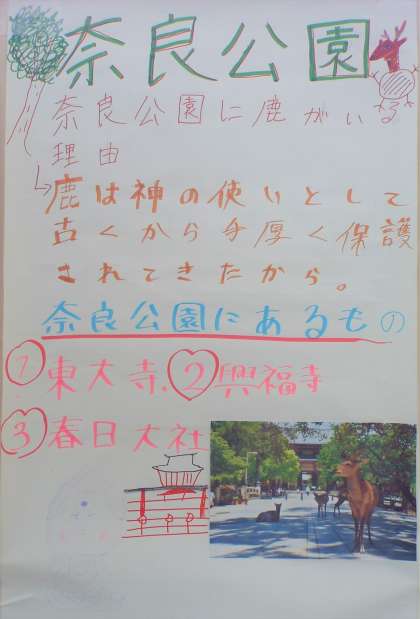 奈良公園
奈良公園に鹿がいる
理由
↳鹿は神の使いとして
古くから手厚く保護
されてきたから。
奈良公園にあるもの
①東大寺.②興福寺
③春日大社